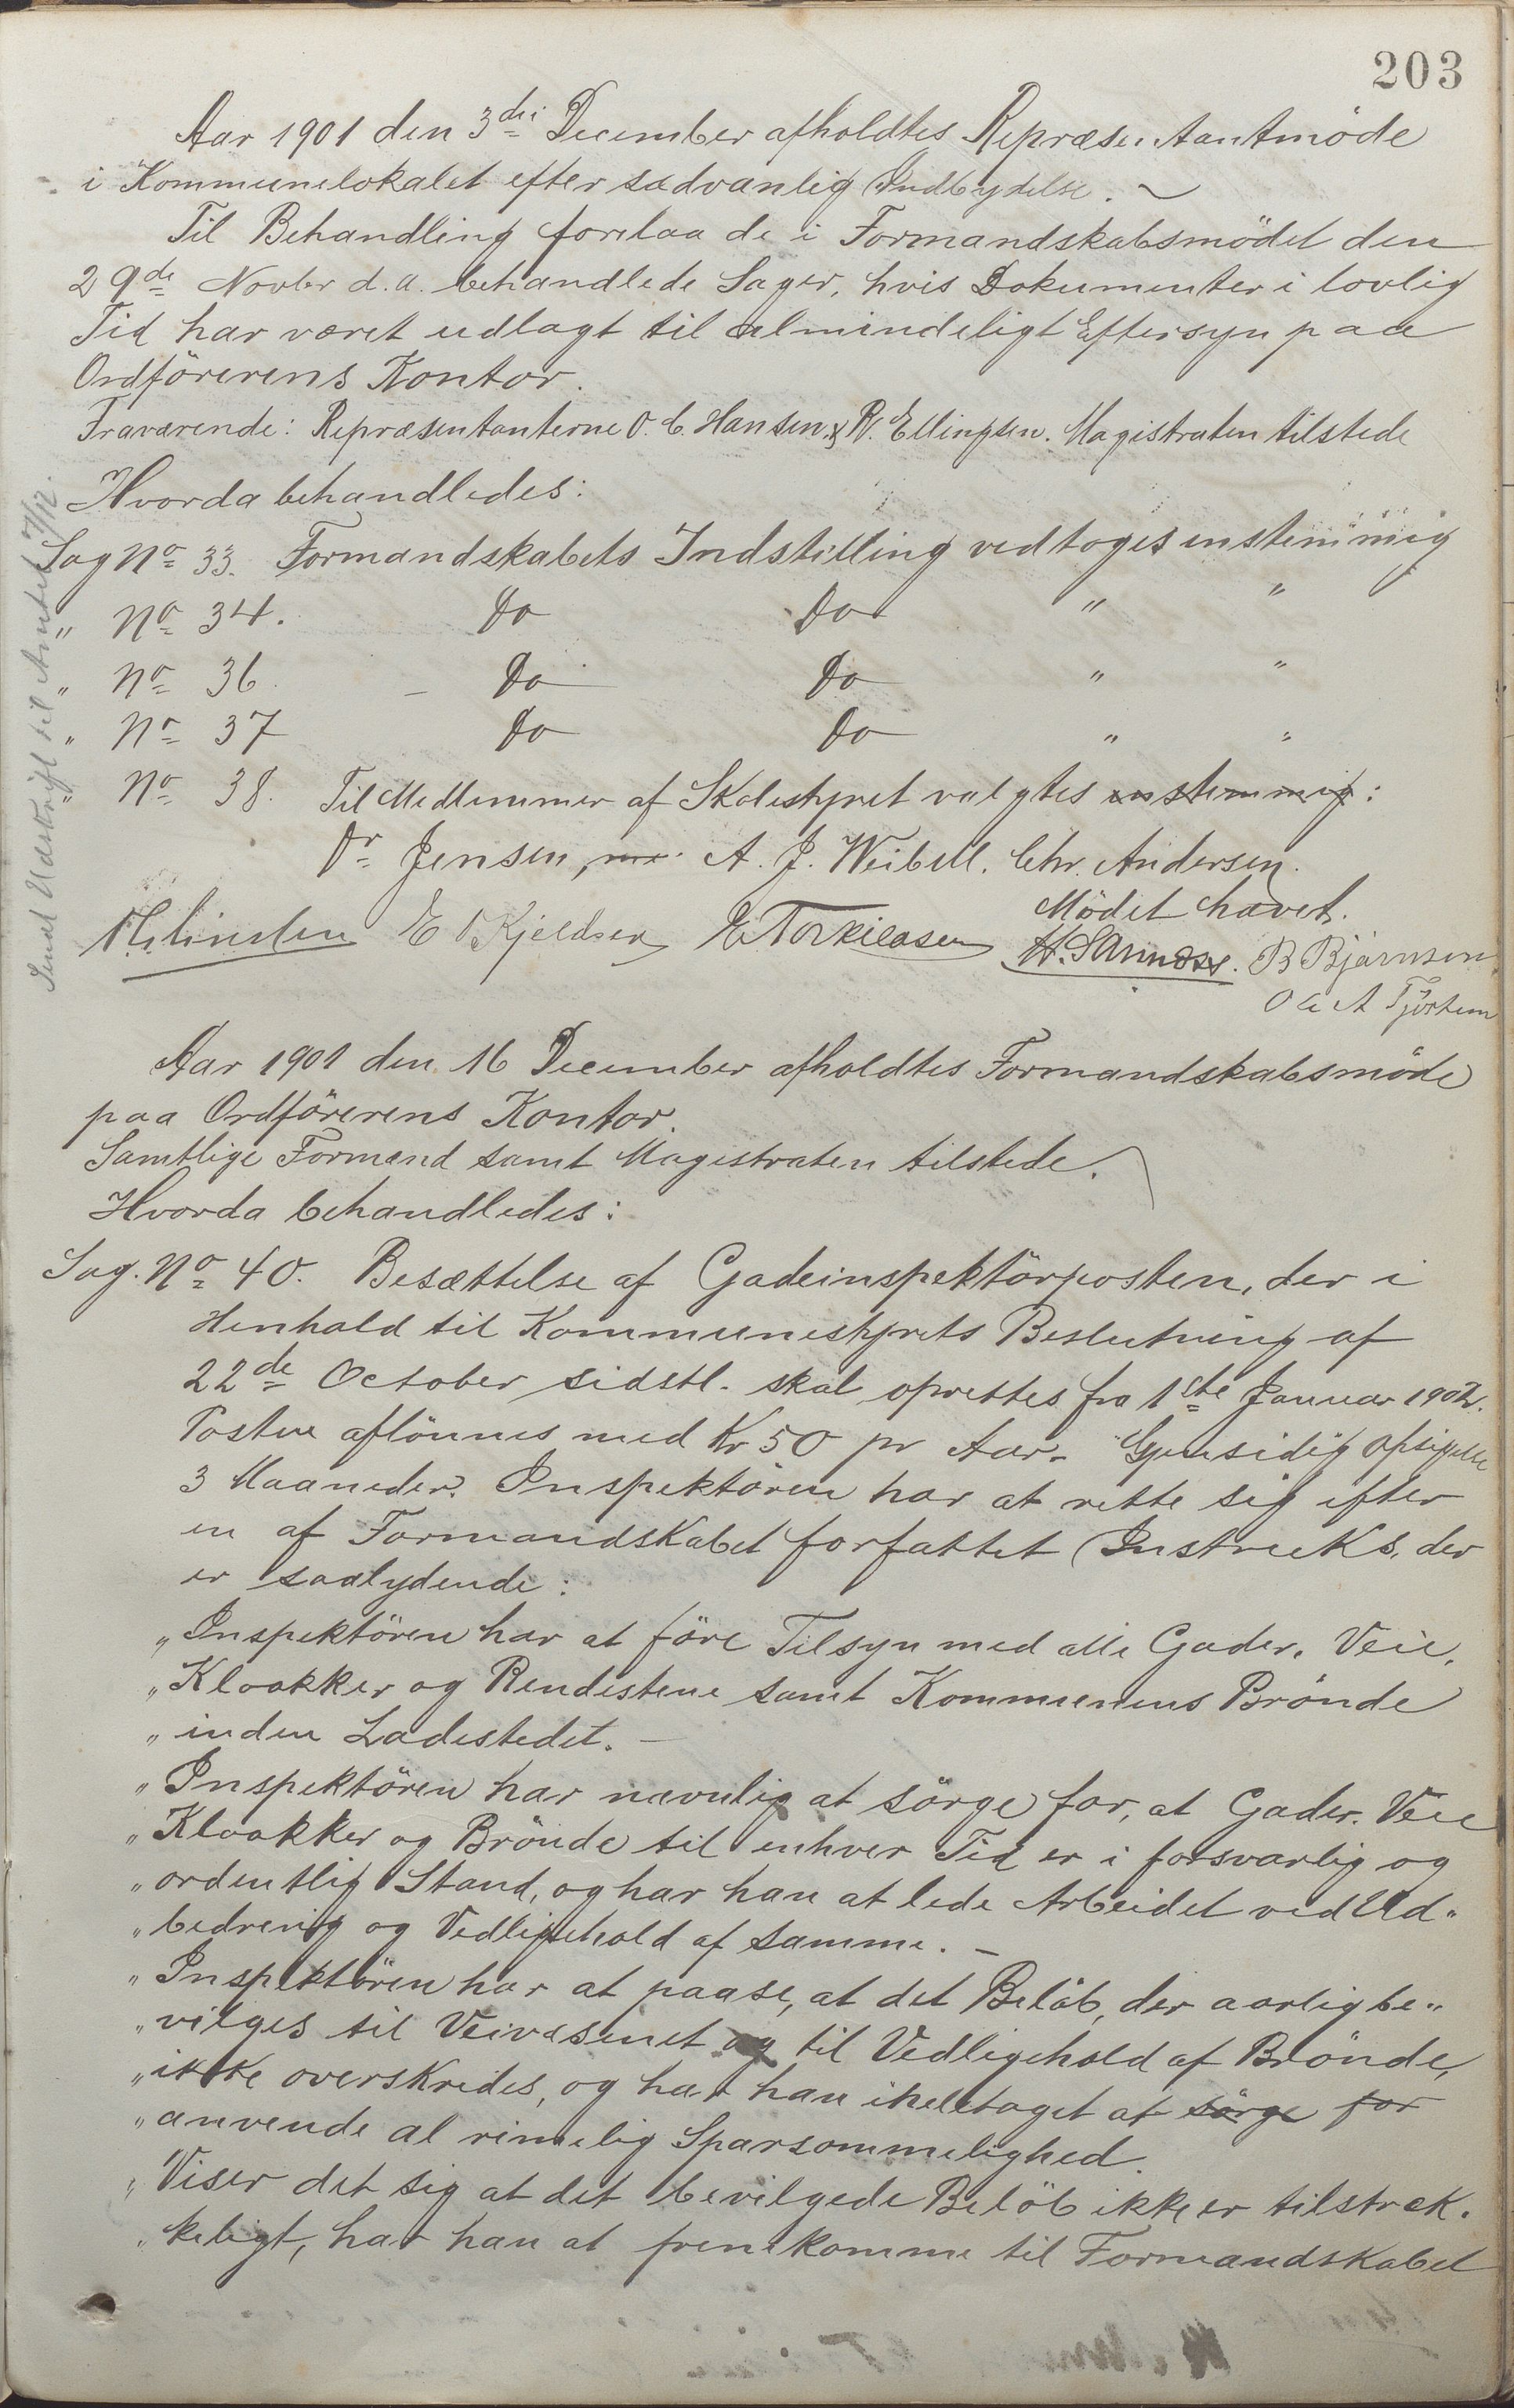 203
Aar 1901 den 3die December afholdtes Repræsentantmöde
i Kommunelokalet efter sædvanlig Indbydelse.
Til Behandling forelaa de i Formandskabsmödet den
29de Novbr d.a. behandlede Sager, hvis Dokumenter i lovlig
Tid har været udlagt til almindeligt Eftersyn paa
Ordförerens Kontor.
Fraværende: Repræsentanterne O. C. Hansen & R. Ellingsen. Magistraten tilstede
Hvorda behandledes:
Sag No 33. Formandskabets Indstilling vedtoges enstemmig
" No 34. Do Do " "
" No 36 - Do Do " "
" No 37 Do Do " "
" No 38. Til Medlemmer af Skolestyret valgtes enstemmig:
Dr Jensen, A. J. Weibell. Chr. Andersen.
Mödet hævet.
E O Kjeldsen E Torkildsen B Bjärnsen
Ole A Tjörtem
Send Udskrift til Amtet 7/12.
Aar 1901 den 16 December afholdtes Formandskabsmöde
paa Ordförerens Kontor.
Samtlige Formænd samt Magistraten tilstede.
Hvorda behandledes:
Sag. No 40. Besættelse af Gadeinspektörposten, der i
Henhold til Kommunestyrets Beslutning af
22de October sidstl. skal oprettes fra 1ste Januar 1902.
Posten aflönnes med Kr 50 pr Aar. Gjensidig opsigelse
3 Maaneder. Inspektören har at rette sig efter
en af Formandskabet forfattet Instruks, der
er saalydende:
"Inspektören har at före Tilsyn med alle Gader, Veie,
"Kloakker og Rendestene samt Kommunens Brönde
"inden Ladestedet. -
"Inspektören har navnlig at sörge for, at Gader, Veie
"Kloakker og Brönde til enhver Tid er i forsvarlig og
"ordentlig Stand, og har han at lede Arbeidet ved Ud"
"bedring og Vedligehold af samme. -
"Inspektören har at paase, at det Belöb, der aarlig be"
"vilges til Veivæsenet og til Vedligehold af Brönde,
"ikke overskrides, og har han iheletaget at sörge for
"anvende al rimelig Sparsommelighed.
"Viser det sig at det bevilgede Belöb ikke er tilstræk.
"keligt, har han at fremkomme til Formandskabet